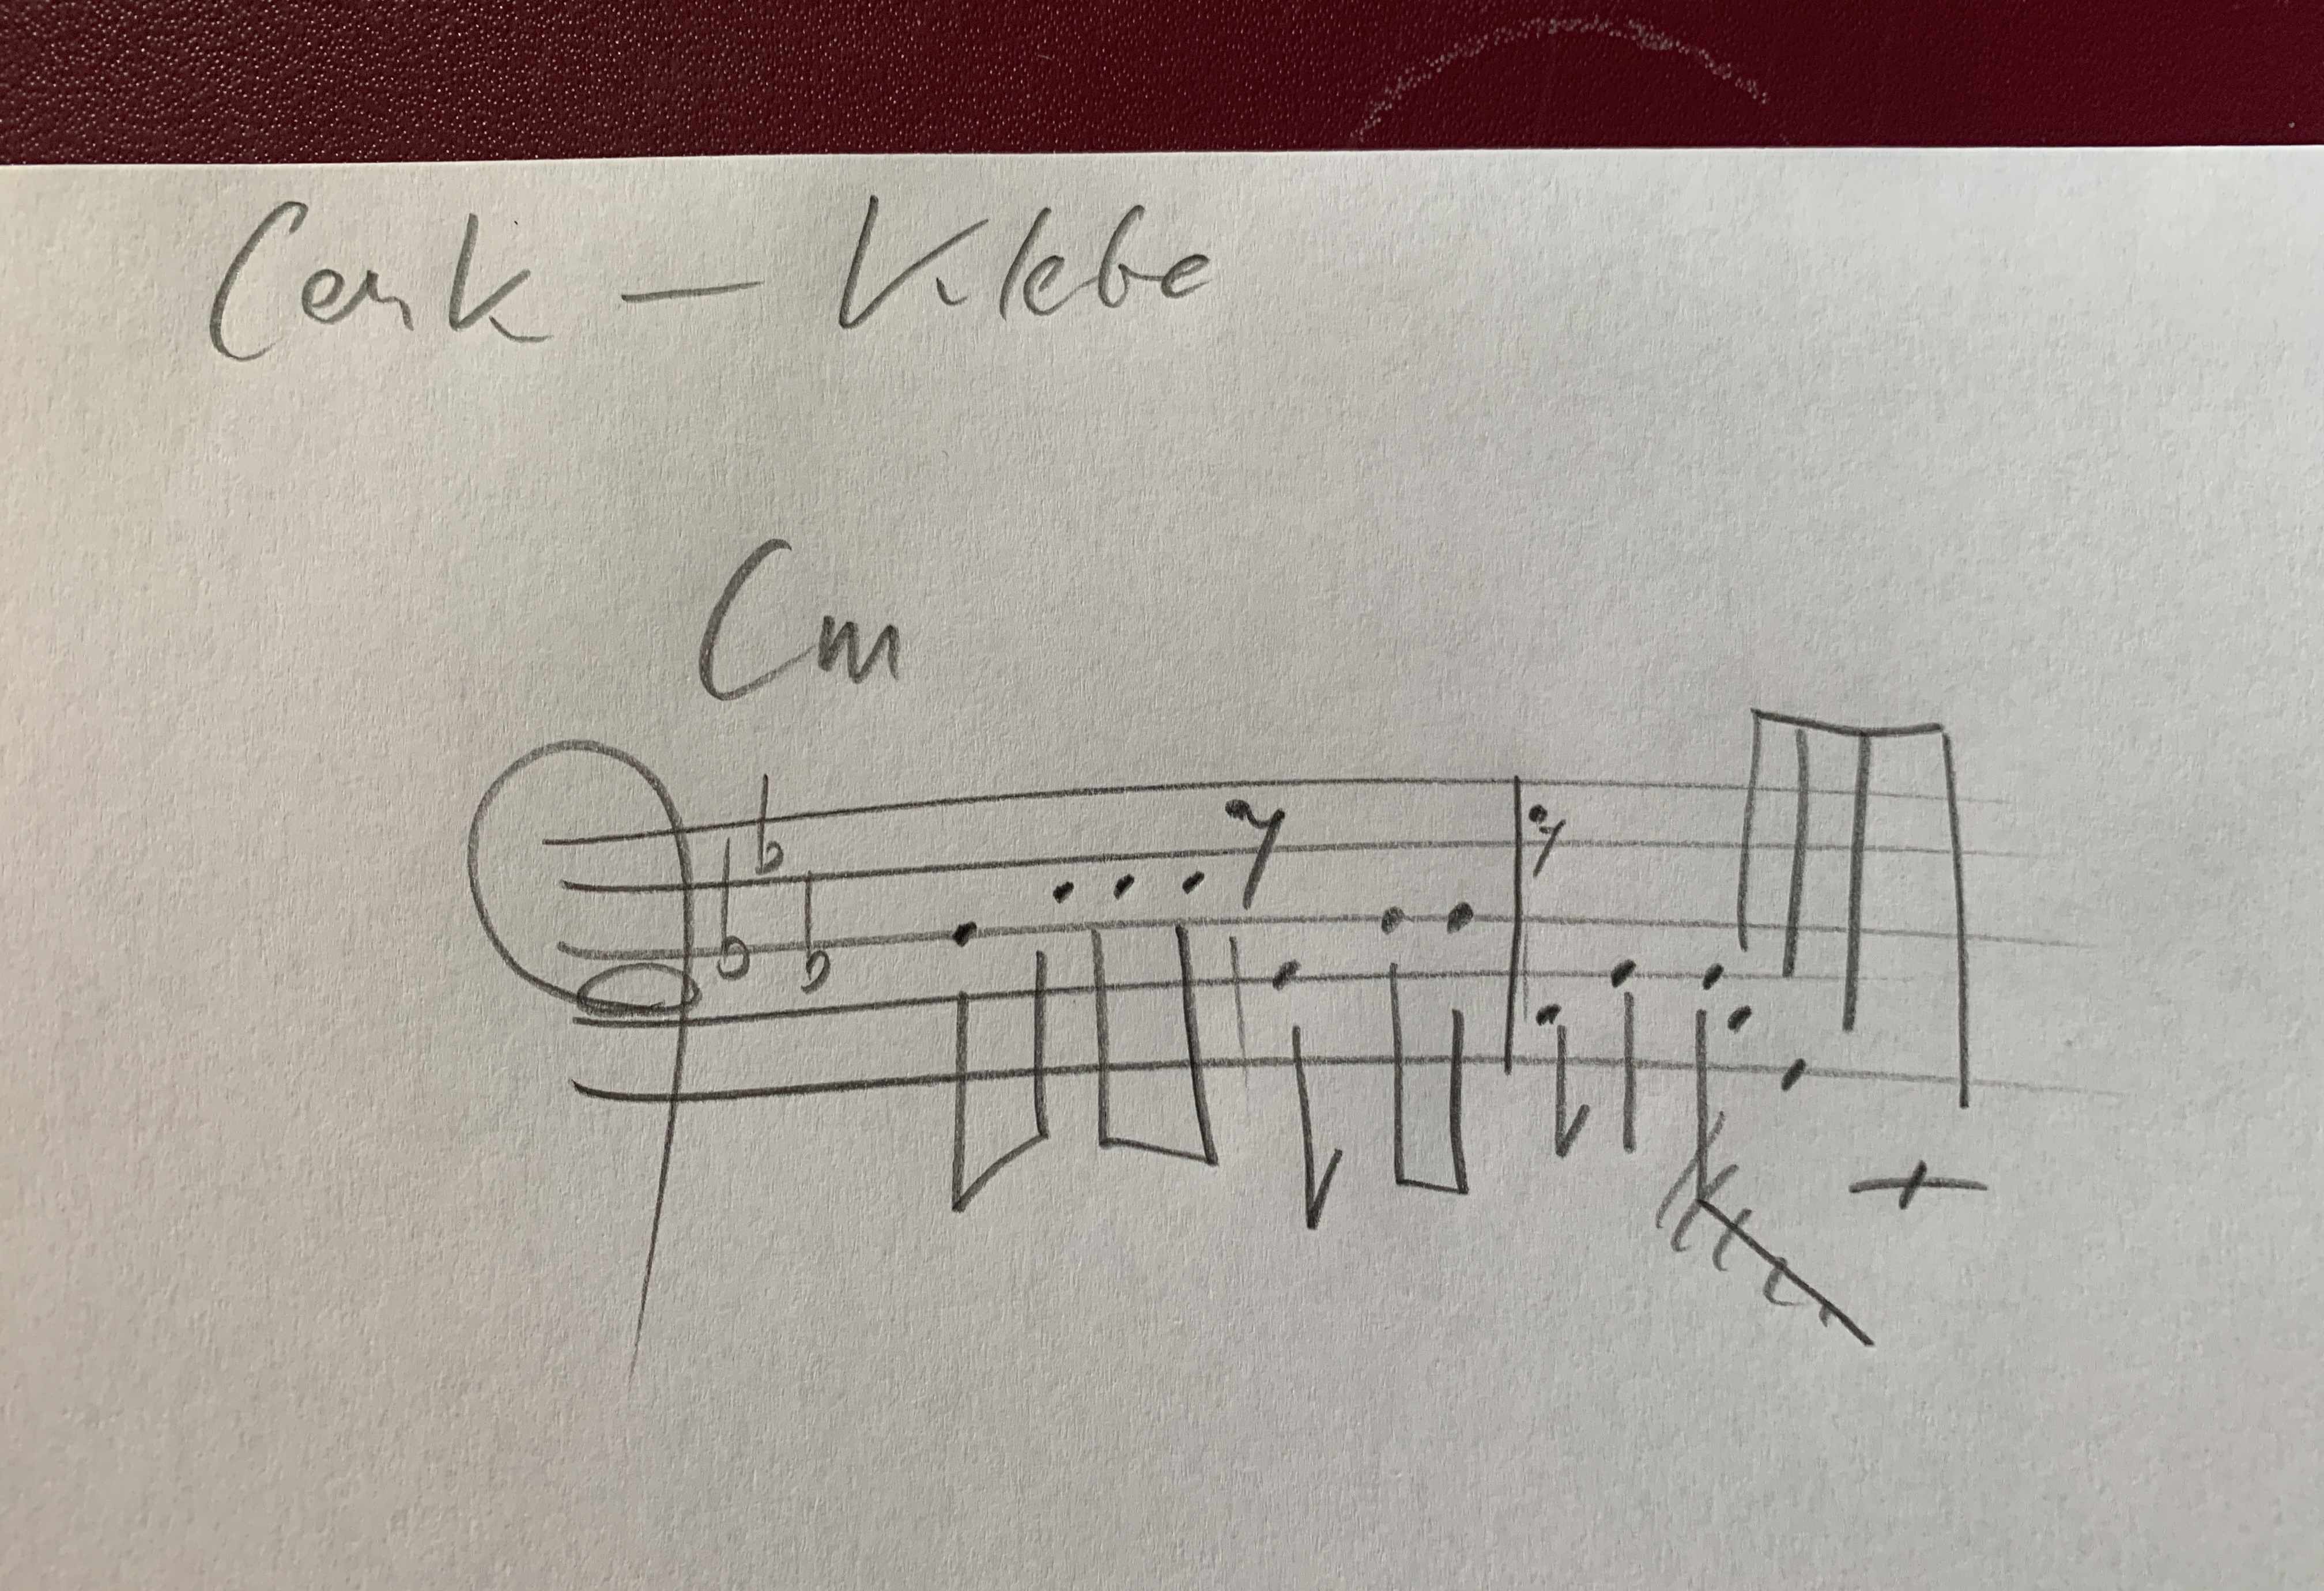 Cenk — Klebe
Cm